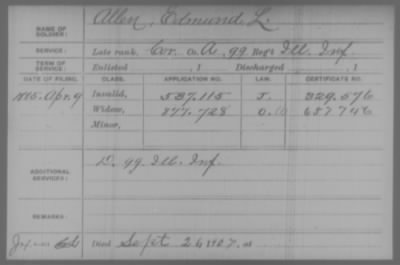 NAME OF SOLDIER: Allen, Edmund L.
SERVICE: Late rank, Cor. Co. A, 99 Reg't Ill. Inf.
TERM OF SERVICE: Enlisted , 1 Discharged , 1
DATE OF FILING. CLASS. APPLICATION NO. LAW. CERTIFICATE NO.
Apr. 9 Invalid, 537.115 J. 329.576
Widow, 877.728 687746
Minor,
ADDITIONAL SERVICES: D. 99 Ill. Inf.
REMARKS:
Died Sept 26 1907, at